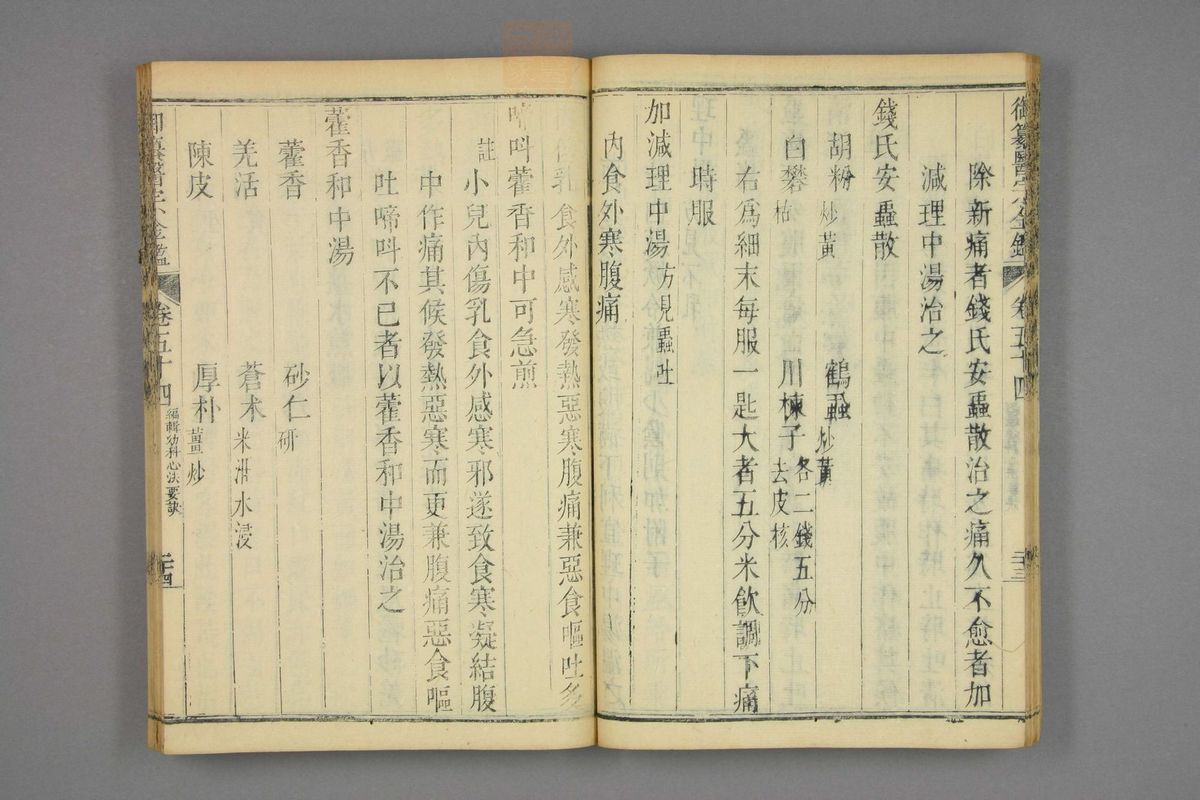 御纂醫宗金鑑 卷五十四 二十三
除新痛者錢氏安蟲散治之痛久不愈者加
減理中湯治之
錢氏安蟲散
胡粉炒黃 鶴蝨炒黃
白礬枯 川楝子去皮核各二錢五分
右爲細末每服一匙大者五分米飲調下痛
時服
加減理中湯方見蟲吐
內食外寒腹痛
乳食外感寒發熱惡寒腹痛兼惡食嘔吐多
啼叫藿香和中可急煎
註小兒內傷乳食外感寒邪遂致食寒凝結腹
中作痛其候發熱惡寒而更兼腹痛惡食嘔
吐啼叫不已者以藿香和中湯治之
藿香和中湯
藿香 砂仁研
羌活 蒼朮米泔水浸
陳皮 厚朴薑炒
御纂醫宗金鑑 卷五十四 編輯幼科心法要訣 二十四